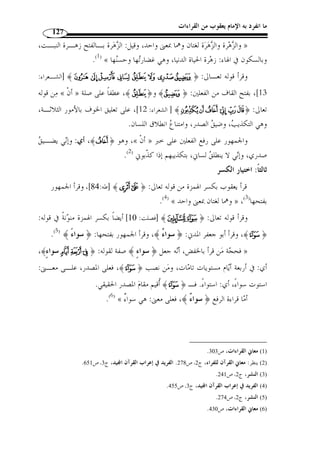 ما انفرد به الإمام يعقوب من القراءات
127
« والزَّهْرة والزَّهَرة لغتان وهما بمعنى واحد، وقيل: الزَّهَرة بـالفتح زهـرة النبـت،
وبالسكون في الهاء: زهْرة الحياة الدنيا، وهي غضارتُها وحسنُها » (1).
وقرأ قوله تعـالى: ﴿ وَيَضِيقُ صَدْرِي وَلَا يَنْطَلِقُ لِسَانِي فَأَرْسِلْ إِلَى هَارُونَ ﴾ [الشـعراء:
13]، بفتح القاف من الفعلين: ﴿ وَيَضِيقُ ﴾ و﴿ يَنْطَلِقُ ﴾، عطفاً على صلة « أنْ » من قوله
تعالى: ﴿ قَالَ رَبِّ إِنِّي أَخَافُ أَنْ يُكَذِّبُونِ ﴾ [ الشعراء: 12]، على تعليق الخوف بالأمور الثلاثـة،
وهي التكذيبُ، وضيقُ الصدر، وامتناعُ انطلاق اللسان.
والجمهور على رفع الفعلين على خبر « أنّ »، وهو ﴿ أَخَافُ ﴾، أي: وإني يضـيقُ
صدري، وإني لا ينطلقُ لساني، بتكذيبهم إذا كذّبوني (2).
ثالثاً: اختيار الكسر
قرأ يعقوب بكسر الهمزة من قوله تعالى: ﴿ أَثَرِي ﴾ [طه: 84]، وقرأ الجمهور
بفتحها(3)، « وهما لغتان بمعنى واحد » (4).
وقرأ قوله تعالى: ﴿ سَوَاءً لِلسَّائِلِينَ ﴾ [فصلت: 10] أيضاً بكسر الهمزة منوّنةً في قوله:
﴿ سَوَاءً ﴾، وقرأ أبو جعفر المدني: ﴿ سواءٌ ﴾، وقرأ الجمهور بفتحها: ﴿ سَوَاءً ﴾ (5).
« فحجّة مَن قرأ بالخفض، أنّه جعل ﴿ سواءٍ ﴾ صفة لقوله: ﴿ فِي أَرْبَعَةِ أَيَّامٍ سواءٍ ﴾،
أي: في أربعة أيّام مستويات تامّات، ومَن نصب ﴿ سَوَاءً ﴾، فعلى المصدر، علـى معـنى:
استوت سواءً، أي: استواءً. فـ ﴿ سَوَاءً ﴾ أُقيم مقامَ المصدر الحقيقي.
أمّا قراءة الرفع ﴿ سواءٌ ﴾، فعلى معنى: هي سواءٌ » (6).
(1) معاني القراءات، ص303.
(2) ينظر: معاني القرآن للفراء، ج2، ص278. الفريد في إعراب القرآن المجيد، ج3، ص651.
(3) النشر، ج2، ص241.
(4) الفريد في إعراب القرآن المجيد، ج3، ص455.
(5) النشر، ج2، ص274.
(6) معاني القراءات، ص430.